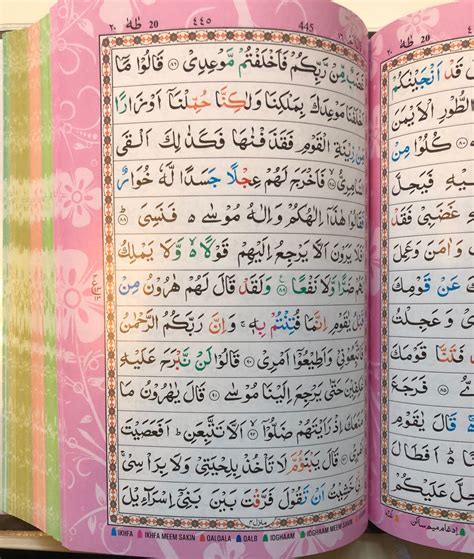 ٢٠ طٰهٰ 20 ٤٤٥ 445
غَضَبٌ مِّنْ رَّبِّكُمْ فَاَخْلَفْتُمْ مَّوْعِدِیْ ﴿۸۶﴾ قَالُوْا مَاۤ
اَخْلَفْنَا مَوْعِدَكَ بِمَلْكِنَا وَلٰكِنَّا حُمِّلْنَاۤ اَوْزَارًا
مِّنْ زِیْنَةِ الْقَوْمِ فَقَذَفْنٰهَا فَكَذٰلِكَ اَلْقَی
السَّامِرِیُّ ﴿۸۷﴾ فَاَخْرَجَ لَهُمْ عِجْلًا جَسَدًا لَّهٗ خُوَارٌ
فَقَالُوْا هٰذَاۤ اِلٰهُكُمْ وَاِلٰهُ مُوْسٰی ە فَنَسِیَ ﴿۸۸﴾
اَفَلَا یَرَوْنَ اَلَّا یَرْجِعُ اِلَیْهِمْ قَوْلًا ە وَّلَا یَمْلِكُ
لَهُمْ ضَرًّا وَّلَا نَفْعًا ﴿۸۹﴾ وَلَقَدْ قَالَ لَهُمْ هٰرُوْنُ مِنْ
قَبْلُ یٰقَوْمِ اِنَّمَا فُتِنْتُمْ بِهٖ ۚ وَاِنَّ رَبَّكُمُ الرَّحْمٰنُ
فَاتَّبِعُوْنِیْ وَاَطِیْعُوْۤا اَمْرِیْ ﴿۹۰﴾ قَالُوْا لَنْ نَّبْرَحَ عَلَیْهِ
عٰكِفِیْنَ حَتّٰی یَرْجِعَ اِلَیْنَا مُوْسٰی ﴿۹۱﴾ قَالَ یٰهٰرُوْنُ مَا
مَنَعَكَ اِذْ رَاَیْتَهُمْ ضَلُّوْۤا ﴿۹۲﴾ اَلَّا تَتَّبِعَنِ ؕ اَفَعَصَیْتَ
اَمْرِیْ ﴿۹۳﴾ قَالَ یَبْنَؤُمَّ لَا تَاْخُذْ بِلِحْیَتِیْ وَلَا بِرَاْسِیْ ۚ
اِنِّیْ خَشِیْتُ اَنْ تَقُوْلَ فَرَّقْتَ بَیْنَ بَنِیْۤ اِسْرَآءِیْلَ
IKHFA IKHFA MEEM SAKIN QALQALA QALB IDGHAAM IDGHAAM MEEM SAKIN
٢٠ طٰهٰ 20
قَدْ اَنْجَیْنٰكُمْ
الطُّوْرِ الْاَیْمَنَ
كُلُوْا مِنْ
فِیْهِ فَیَحِلَّ
غَضَبِیْ فَقَدْ
وَاٰمَنَ وَعَمِلَ
عَنْ قَوْمِكَ
وَعَجِلْتُ
فَتَنَّا قَوْمَكَ
فَرَجَعَ
قَالَ یٰقَوْمِ
اَفَطَالَ
عَلَیْكُمْ